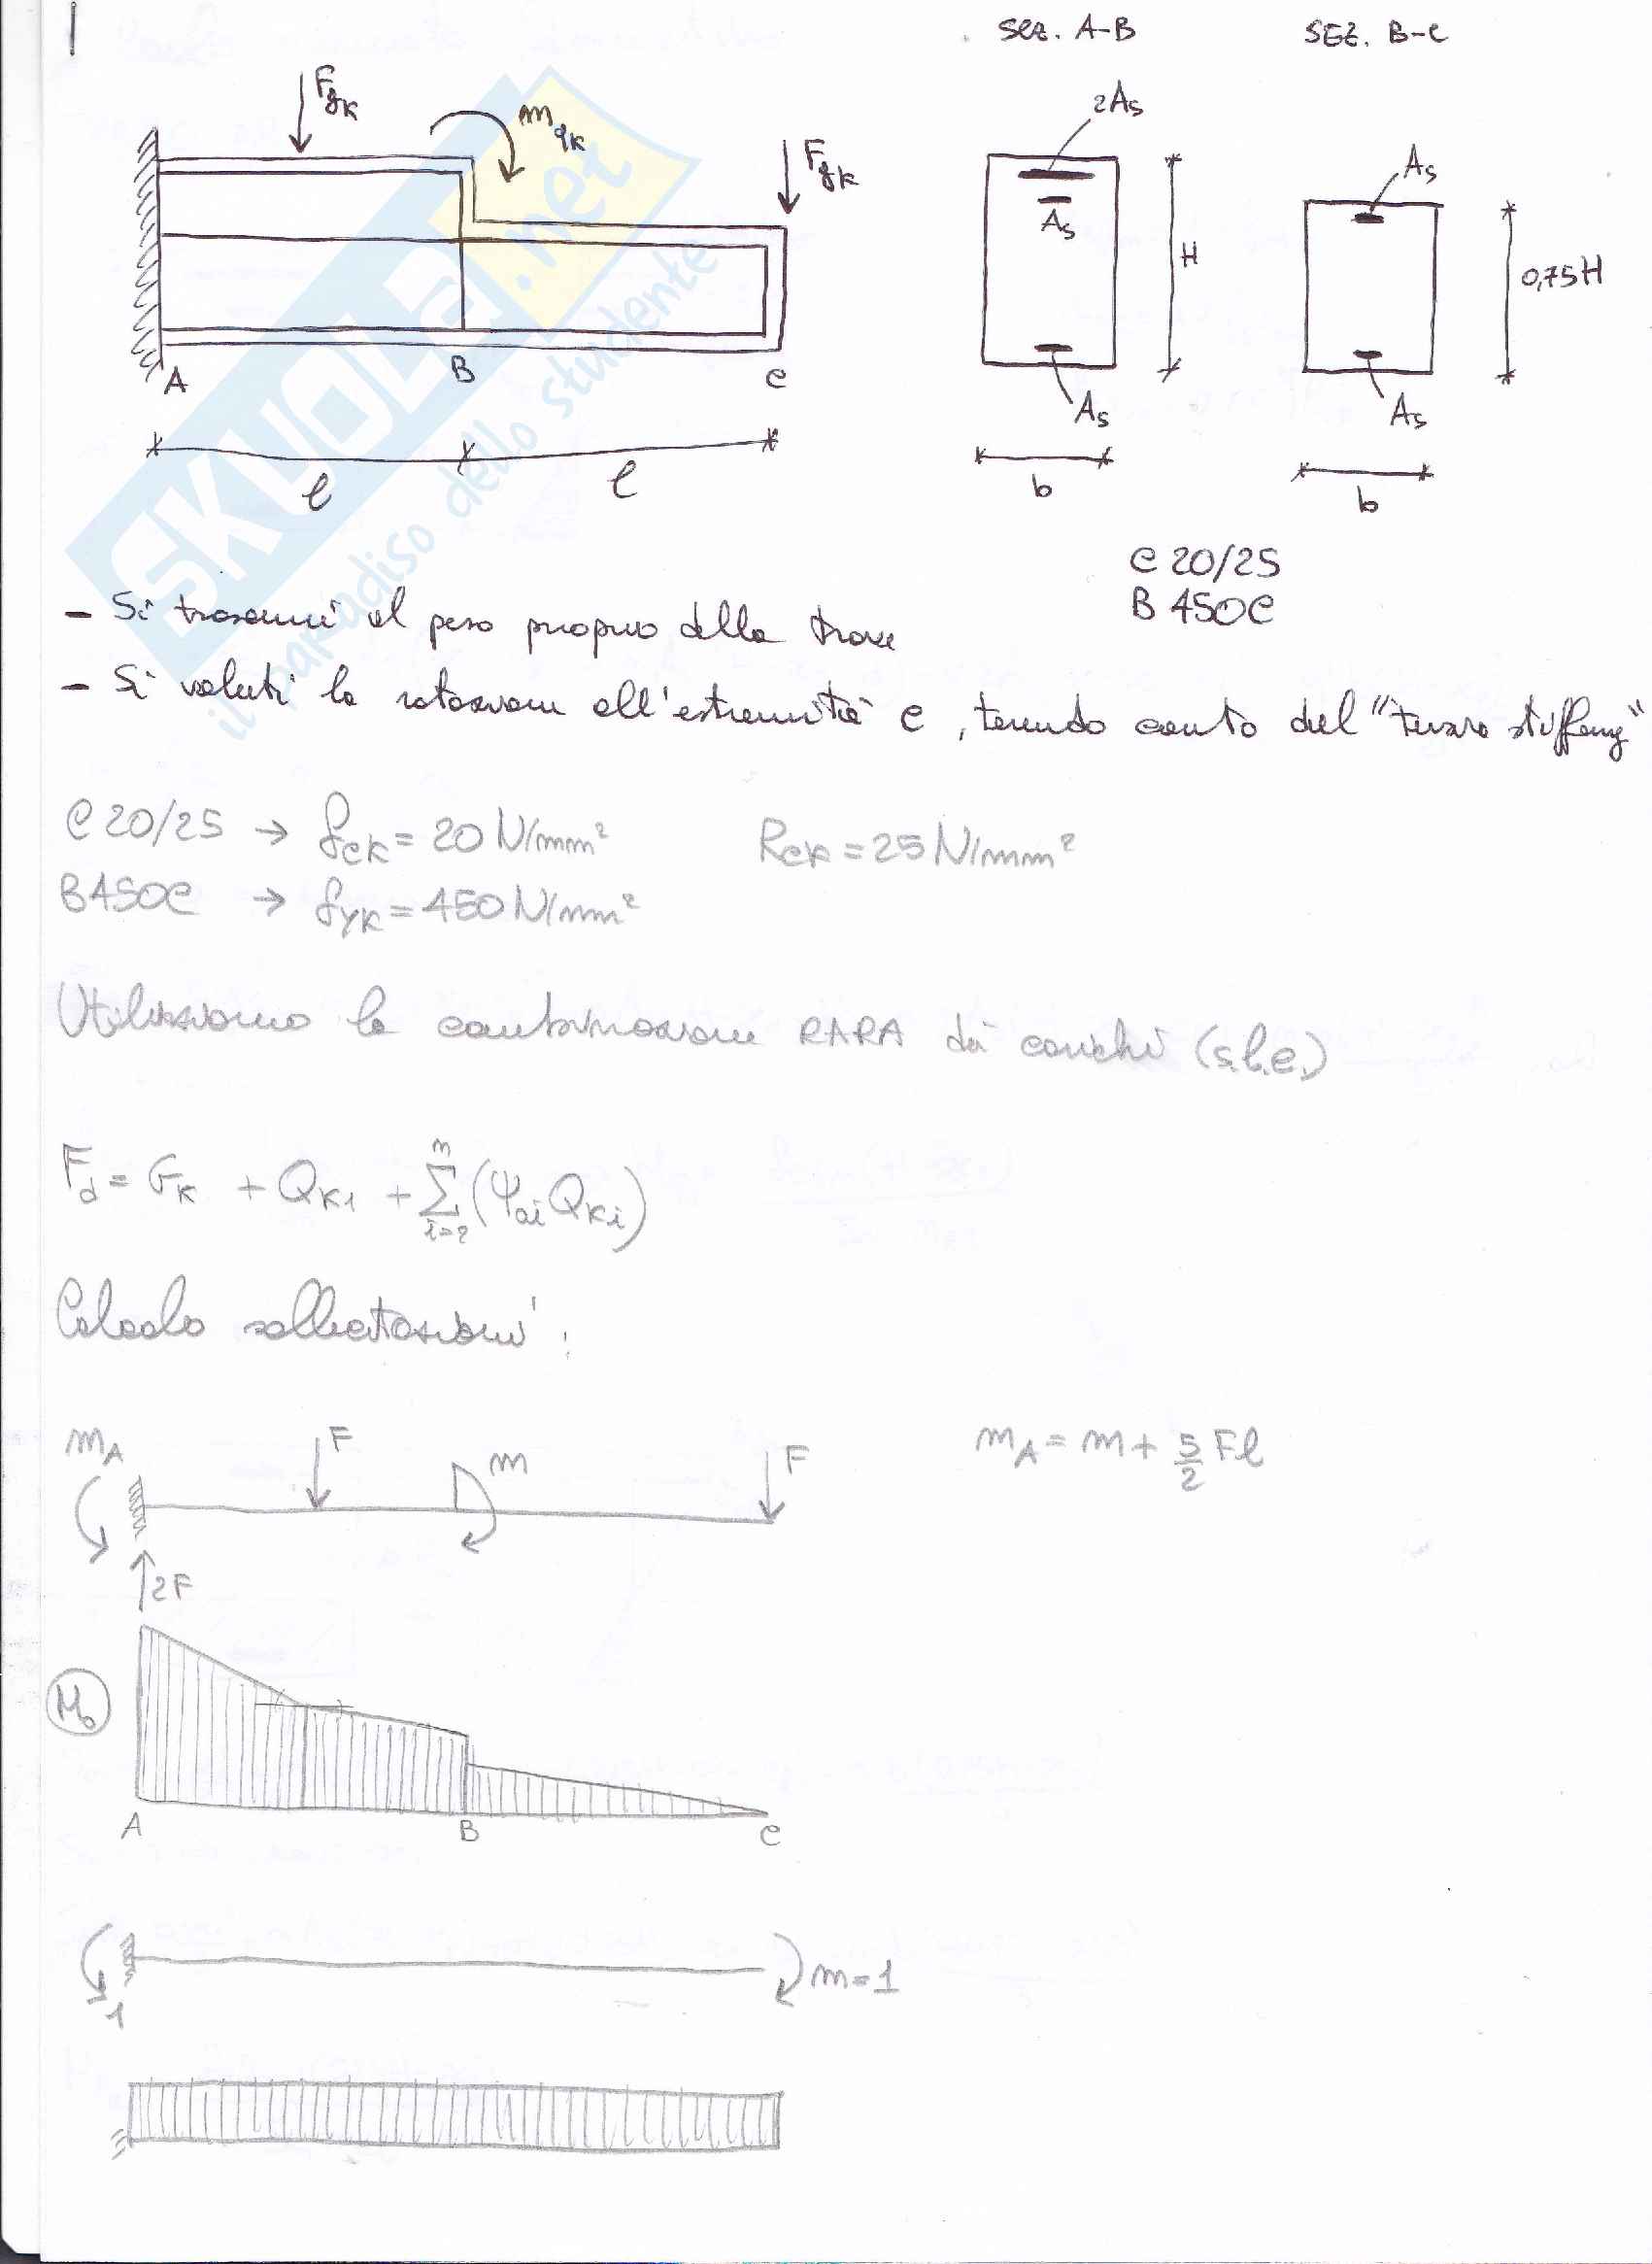 1
SEZ. A-B
SEZ. B-C
Fgk
mqk
Fgk
2As
As
H
As
b
As
0,75H
As
b
A
B
C
l
l
SKUOLa.net
il paradiso dello studente
C 20/25
B 450C
- Si trascuri il peso proprio della trave
- Si valuti la rotazione all'estremità C, tenendo conto del "tension stiffening"
C 20/25 → fck = 20 N/mm² Rck = 25 N/mm²
B450C → fyk = 450 N/mm²
Utilizziamo la combinazione RARA di carichi (s.l.e.)
Fd = Gk + Qk1 + Σ(i=2, n) (ψ0i Qki)
Calcolo sollecitazioni:
mA
F
m
F
mA = m + 5/2 Fl
2F
M0
A
B
C
1
m=1